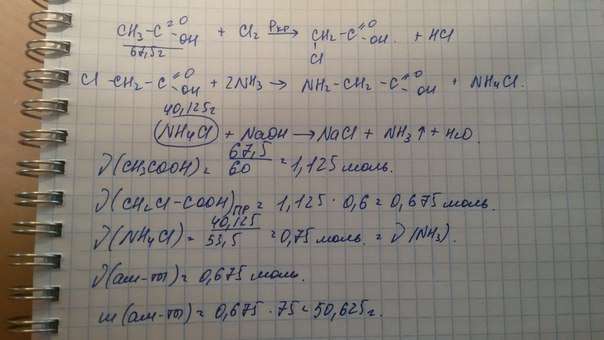 CH₃-C(=O)OH + Cl₂ →(Pкр) CH₂-C(=O)OH + HCl
67,5г | Cl
Cl-CH₂-C(=O)OH + 2NH₃ → NH₂-CH₂-C(=O)OH + NH₄Cl.
40,125г
(NH₄Cl) + NaOH → NaCl + NH₃↑ + H₂O.
ν(CH₃COOH) = 67,5/60 = 1,125 моль.
ν(CH₂Cl-COOH)пр = 1,125 · 0,6 = 0,675 моль.
ν(NH₄Cl) = 40,125/53,5 = 0,75 моль = ν(NH₃).
ν(ам-ты) = 0,675 моль.
m(ам-ты) = 0,675 · 75 = 50,625г.